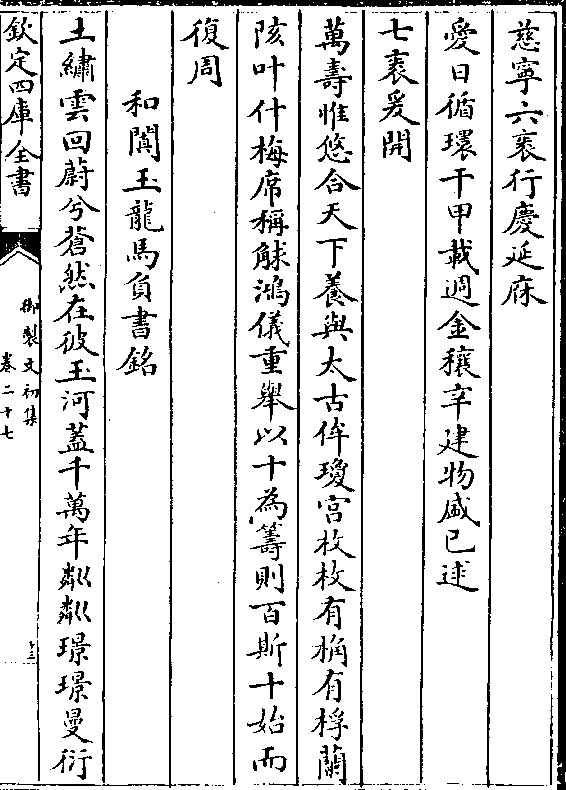 慈寧六袠行慶延庥
愛日循環干甲載週金穰辛建物盛巳逑
七袠爰開
萬壽惟悠合天下養與太古侔瓊宫枚枚有桷有桴蘭
陔叶什梅席稱觩鴻儀重舉以十為籌則百斯十始而
復周
和闐玉龍馬負書銘
土繡雲回蔚兮蒼然在彼玉河蓋千萬年粼粼璟璟曼衍
欽定四庫全書
御製文初集
卷二十七
十三